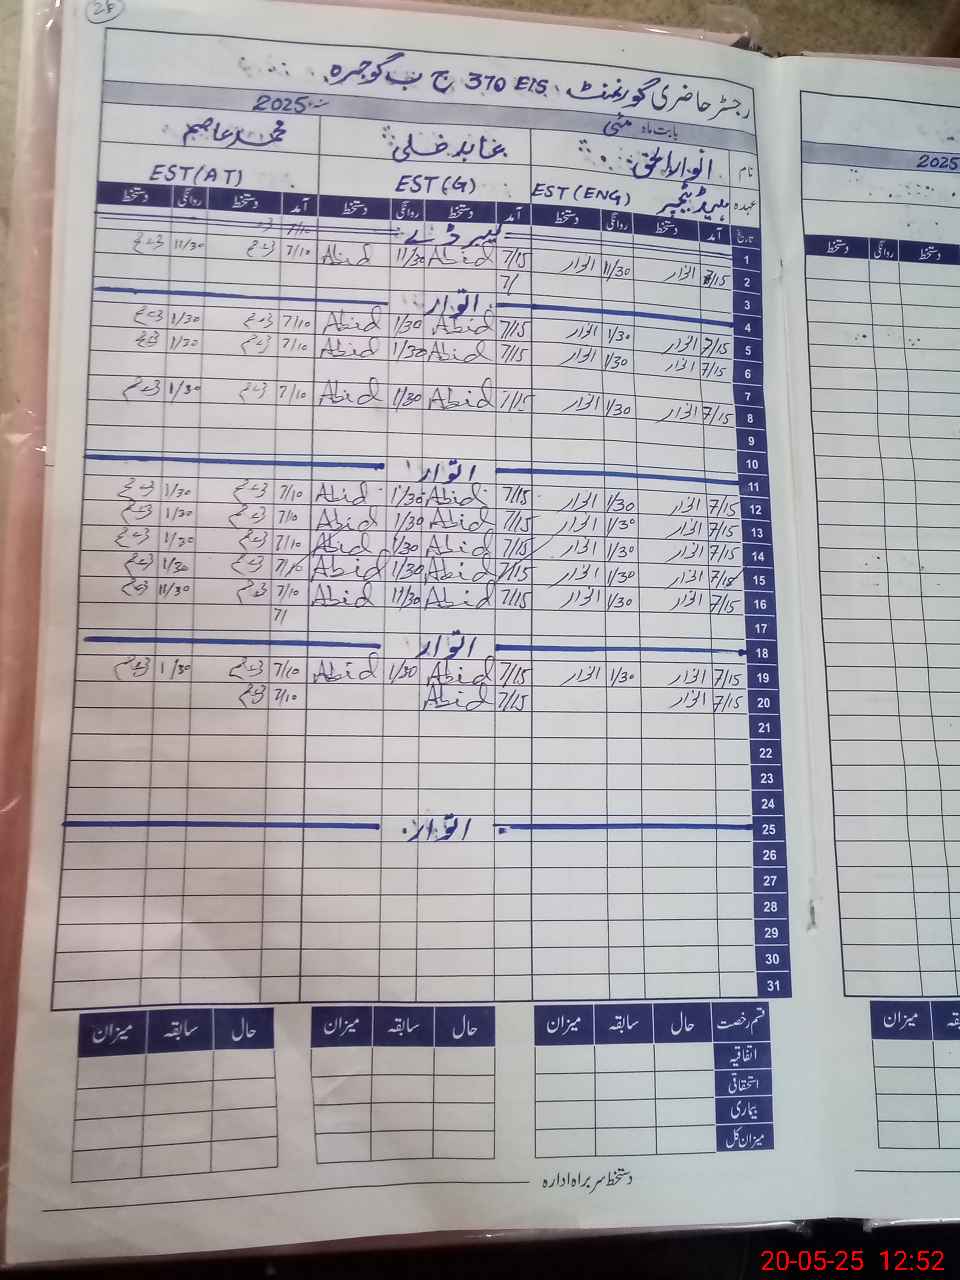 28
رجسٹر حاضری گورنمنٹ EIS 370 ج ب گوجرہ
بابت ماہ مئی سنہ 2025
نام انوارالحق عابد علی محمد عاصم
عہدہ ہیڈ ٹیچر EST (ENG) EST (G) EST (AT)
تاریخ آمد دستخط روانگی دستخط آمد دستخط روانگی دستخط آمد دستخط روانگی دستخط
1 لیبر ڈے 7/10
2 7/15 انوار 11/30 انوار 7/15 Abid 11/30 Abid 7/10 11/30
3 7/
4 اتوار
5 7/15 انوار 1/30 انوار 7/15 Abid 1/30 Abid 7/10 1/30
6 7/15 انوار 1/30 انوار 7/15 Abid 1/30 Abid 7/10 1/30
7
8 7/15 انوار 1/30 انوار 7/15 Abid 1/30 Abid 7/10 1/30
9
10
11 اتوار
12 7/15 انوار 1/30 انوار 7/15 Abid 1/30 Abid 7/10 1/30
13 7/15 انوار 1/30 انوار 7/15 Abid 1/30 Abid 7/10 1/30
14 7/15 انوار 1/30 انوار 7/15 Abid 1/30 Abid 7/10 1/30
15 7/15 انوار 1/30 انوار 7/15 Abid 1/30 Abid 7/10 1/30
16 7/15 انوار 11/30 انوار 7/15 Abid 11/30 Abid 7/10 11/30
17 7/
18 اتوار
19 7/15 انوار 1/30 انوار 7/15 Abid 1/30 Abid 7/10 1/30
20 7/15 انوار 7/15 Abid 7/10
21
22
23
24
25 اتوار
26
27
28
29
30
31
قسم رخصت حال سابقہ میزان حال سابقہ میزان حال سابقہ میزان
اتفاقیہ
استحقاقی
بیماری
میزان کل
دستخط سربراہ ادارہ
2025
دستخط روانگی دستخط
میزان
20-05-25 12:52